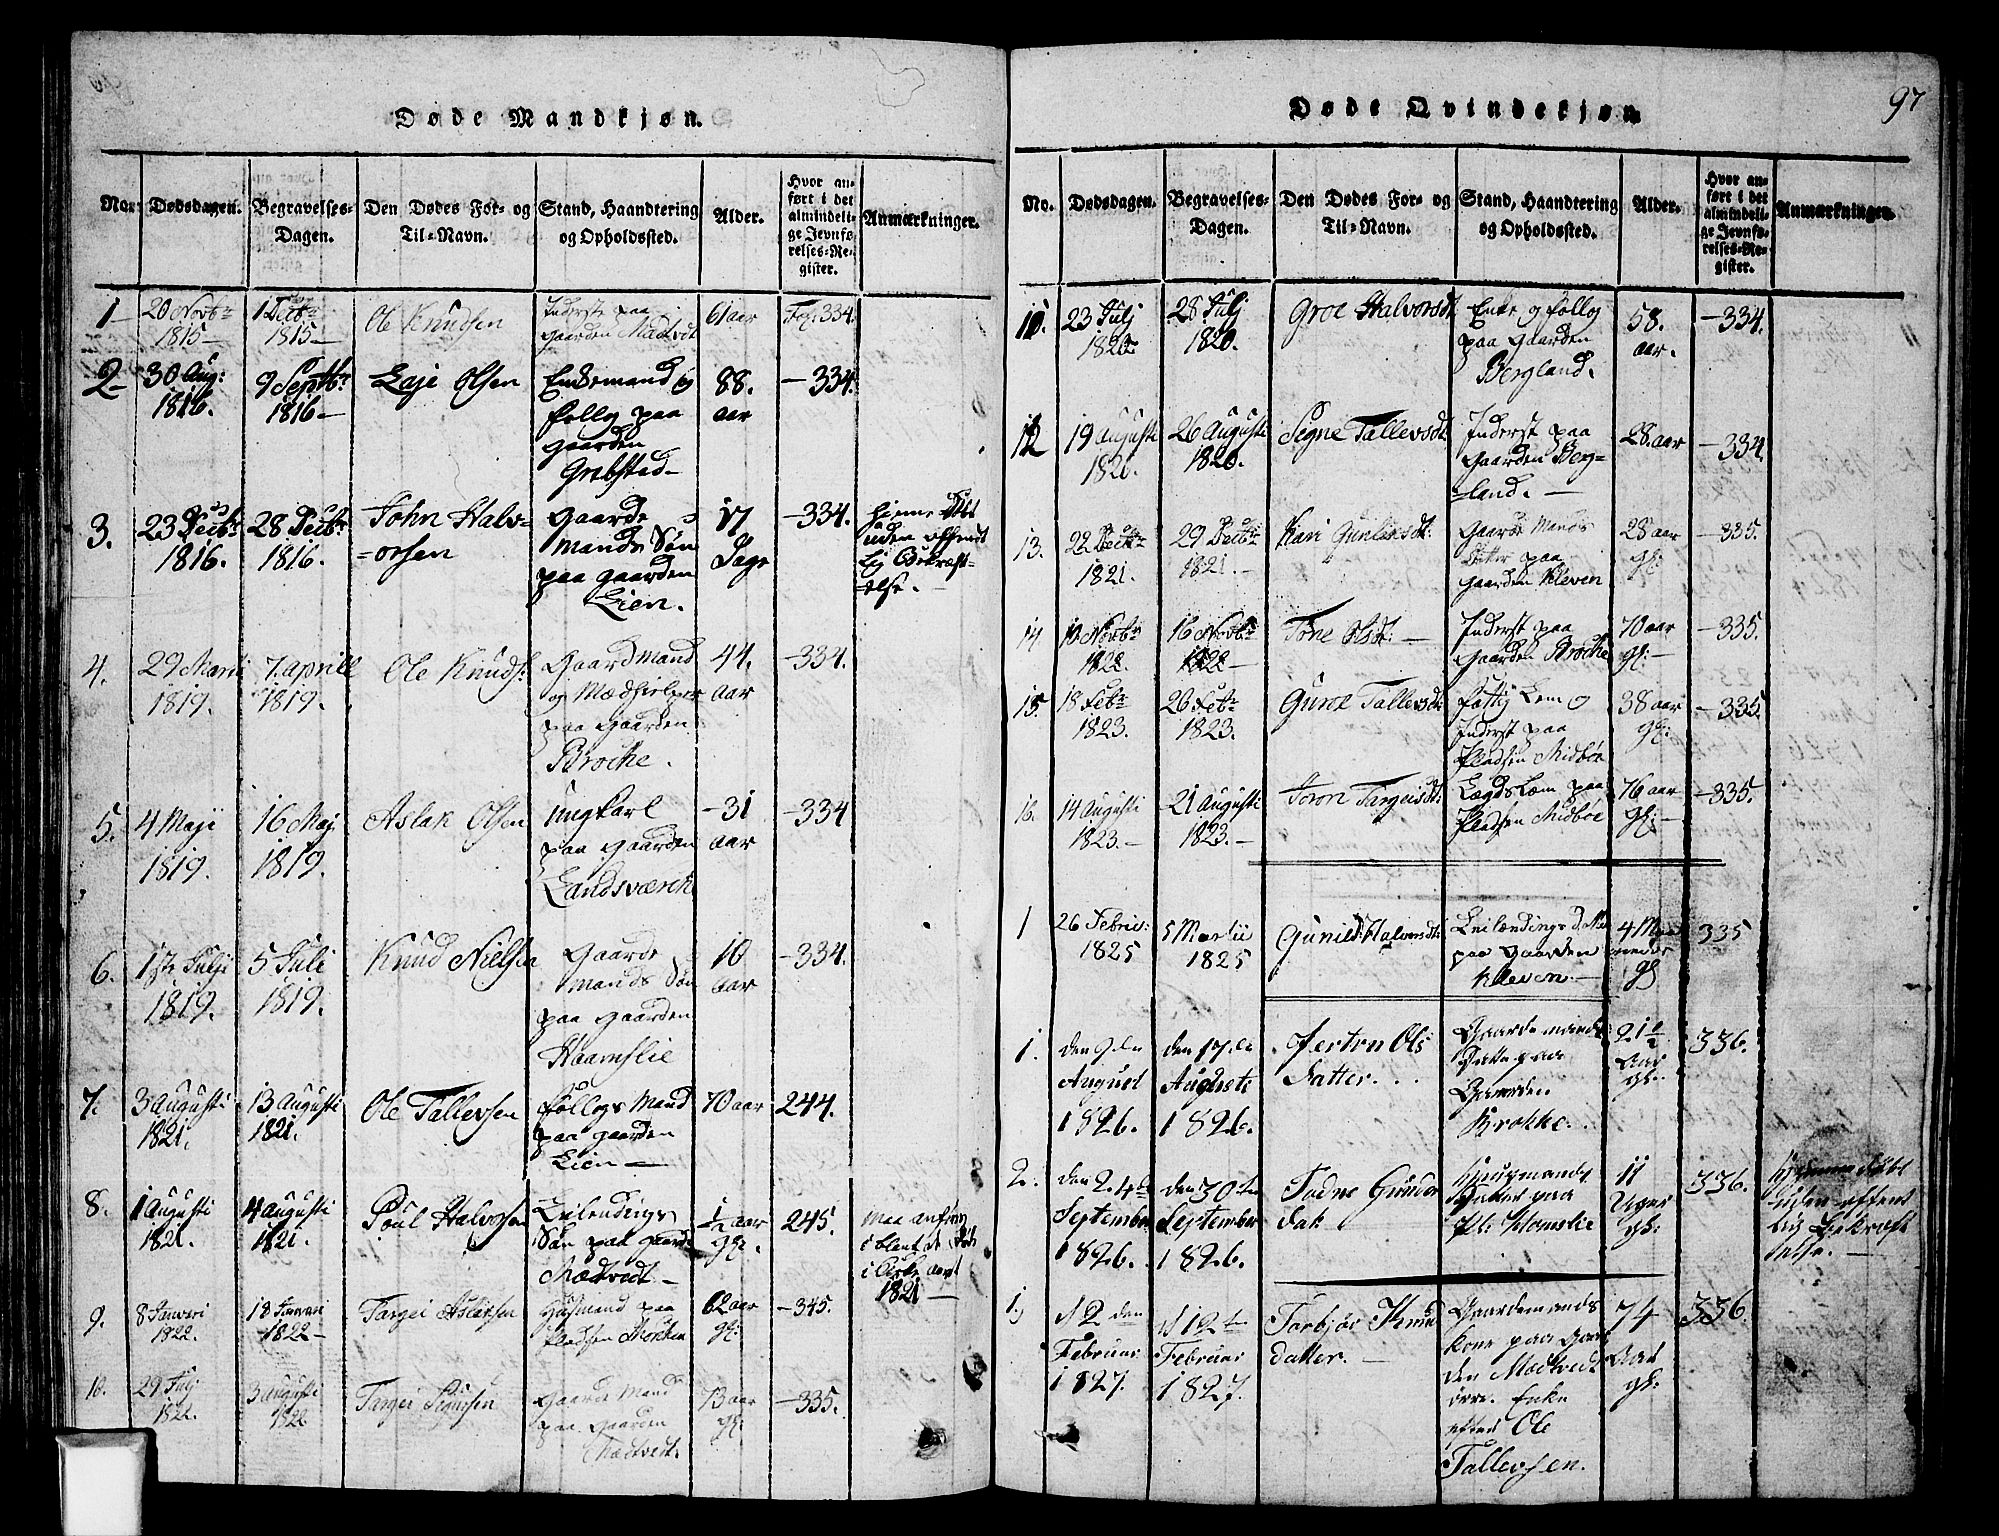 Døde Mandkjøn.
No. Dødsdagen. Begravelses-Dagen. Den Dødes For- og Til-Navn. Stand, Haandtering og Opholdssted. Alder. Hvor anført i det almindelige Jevnførelses-Register. Anmærkninger.
1 20 Novbr 1815 1 Decbr 1815 Ole Knudsen Inderst paa gaarden Madtvedt 61 aar Fol. 334.
2 30 Aug: 1816. 9 Septbr 1816 Laje Olsen Enkemand og follog paa gaarden 88. aar 334.
3. 23 Decbr 1816. 28 Decbr 1816. John Halvorsen Gaardemands Søn paa gaarden Lien. 17 Dage 334. hjemme døbt uden offentlig Bekræftelse.
4. 29 Marti 1819. 7. aprill 1819. Ole Knuds: Gaardmand og Medhielper paa gaarden Brocke. 44. aar 334.
5. 4 Maji 1819. 16 Maj. 1819. Aslak Olsen Ungkarl paa gaarden Landsværck 31 aar 334
6. 1ste Julji 1819. 5 Juli 1819. Knud Nielsen Gaardemands Søn paa gaarden Haamslie 10 aar 334.
7. 3 augusti 1821. 13 augusti 1821. Ole Tallevsen follogs Mand paa gaarden Lien 70 aar 244.
8. 1 augusti 1821. 4 augusti 1821. Poul Halvorsen Leilendings Søn paa gaarden Madtvedt 1/2 aar gl. 245. maa anføres i blant de Døde i Kirke aaret 1821
9. 8 Januari 1822. 18 Januari 1822 Targei Aslaksen Husmand paa pladsen 62 aar gl: 345.
10. 29 Julj 1822. 3 augusti 1822 Targei Sigursen Gaarde Mand paa gaarden Madtvedt. 73 aar gl: 335.
Døde Qvindekjøn. 97
No. Dødsdagen. Begravelses-Dagen. Den Dødes For- og Til-Navn. Stand, Haandtering og Opholdssted. Alder. Hvor anført i det almindelige Jevnførelses-Register. Anmærkninger.
11. 23 Julj 1820. 28 Julj 1820. Groe Halvorsdt Enke og follog paa gaarden Bergland. 58. aar. 334.
12 19 augusti 1820. 26 augusti 1820. Segne Tallevsdt: Inderst paa gaarden Bergland. 28 aar 334.
13. 22 Decbr 1821. 29 Decbr 1821. Kari Gunlevsdt: Gaarde Mands Datter paa gaarden Kleven 28 aar gl: 335.
14. 10 Novbr 1822. 16 Novbr 1822 Tone Olsdt: Inderst paa gaarden Brocke 70 aar gl: 335.
15. 18 Febr 1823. 26 Febr 1823. Gunne Tallevsdt: fattig Lem og Inderst paa pladsen Midbøe 38 aar gl: 335.
16. 14 augusti 1823. 21 augusti 1823. Joron Targeisdt: Lægdslem paa pladsen Midbøe 76 aar gl: 335.
1 26 Febru: 1825 5 Martii 1825 Gunild Halvorsdt: Leilændings datter paa Gaarden Kleven. 4 Maaneder gl 335
1. den 9de August 1826. den 17de Augusti 1826. Jertru Ols Datter. Gaardemands Datter paa Gaarden Brokke. 21 1/2 Aar gl. 336.
2. den 24de September 1826. den 30te September 1826. Tadne Gunder dat. Huusmands Datter paa Pl: Homslie 11 Uger gl: 336. Hjemmedøbt uden offentlig Bekræftelse.
1. d 2den Februar 1827. d 12te Februar 1827. Torbjør Knuddatter. Gaardemands kone paa Gaarden Madtvedt øvre. Enke efter Ole Tallevsen. 74 Aar gl: 336.